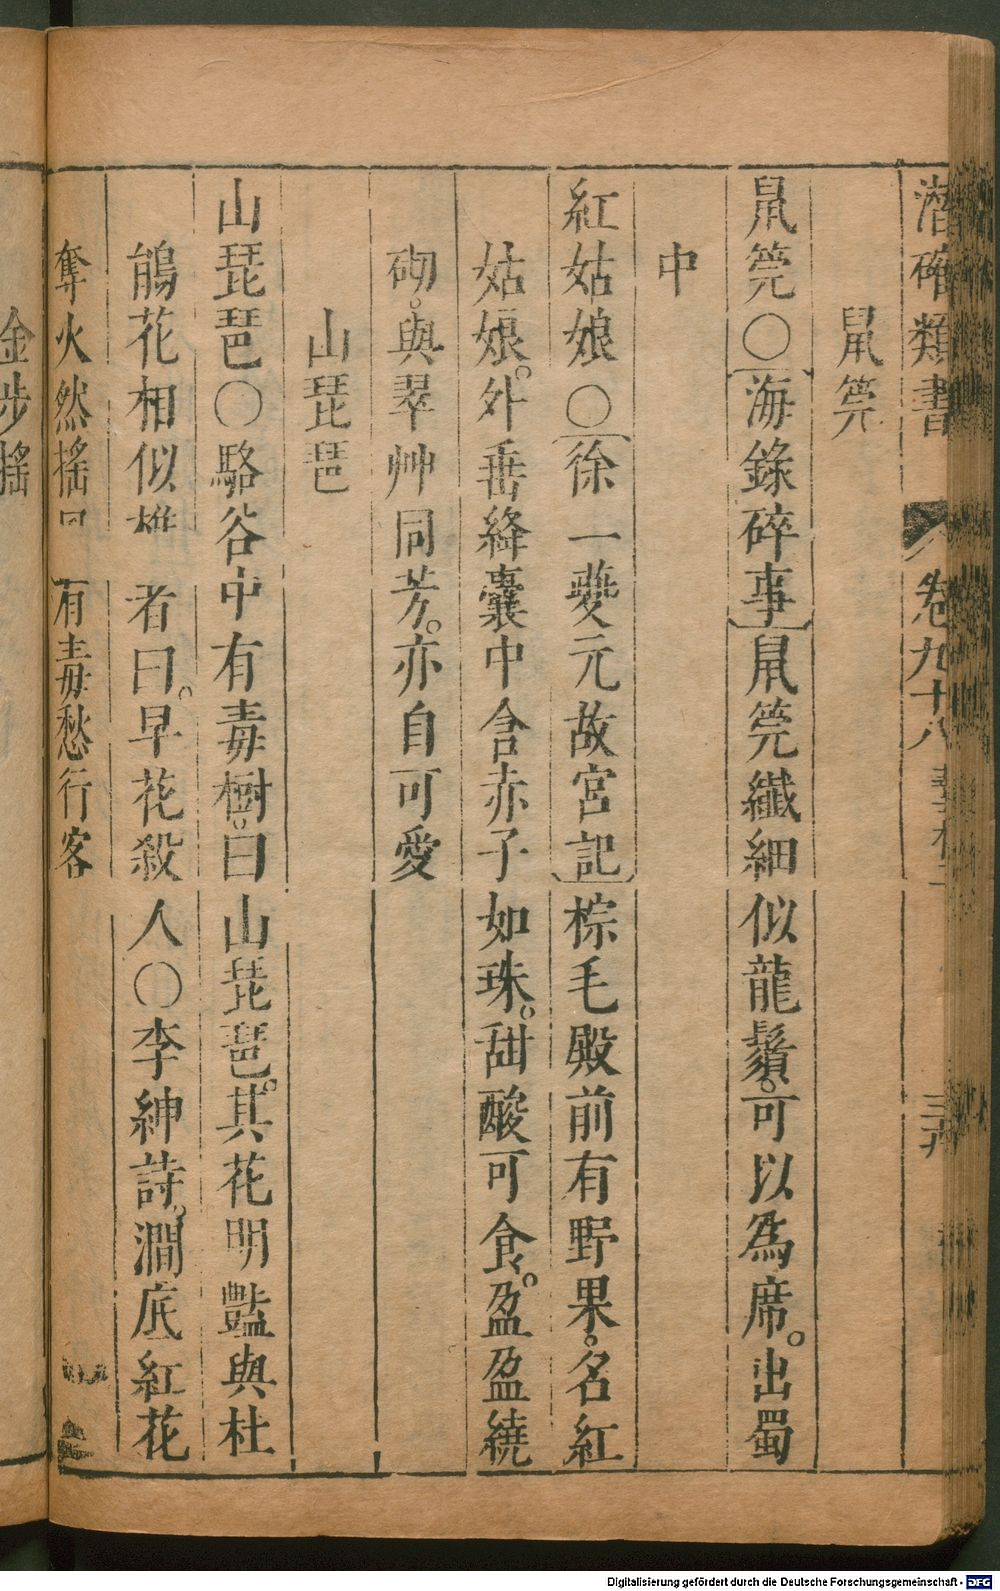 潛確類書 卷九十八 三九
鼠莞
鼠莞〇〔海錄碎事〕鼠莞纖細似龍鬚。可以為席。出蜀
中
紅姑娘〇〔徐一夔元故宮記〕棕毛殿前有野果。名紅
姑娘。外垂絳囊中含赤子如珠。甜酸可食。盈盈繞
砌。與翠艸同芳。亦自可愛
山琵琶
山琵琶〇駱谷中有毒樹。曰山琵琶。其花明豔與杜
鵑花相似樵者曰。早花殺人〇李紳詩。澗底紅花
奪火然搖 有毒愁行客
金步搖
Digitalisierung gefördert durch die Deutsche Forschungsgemeinschaft - DFG